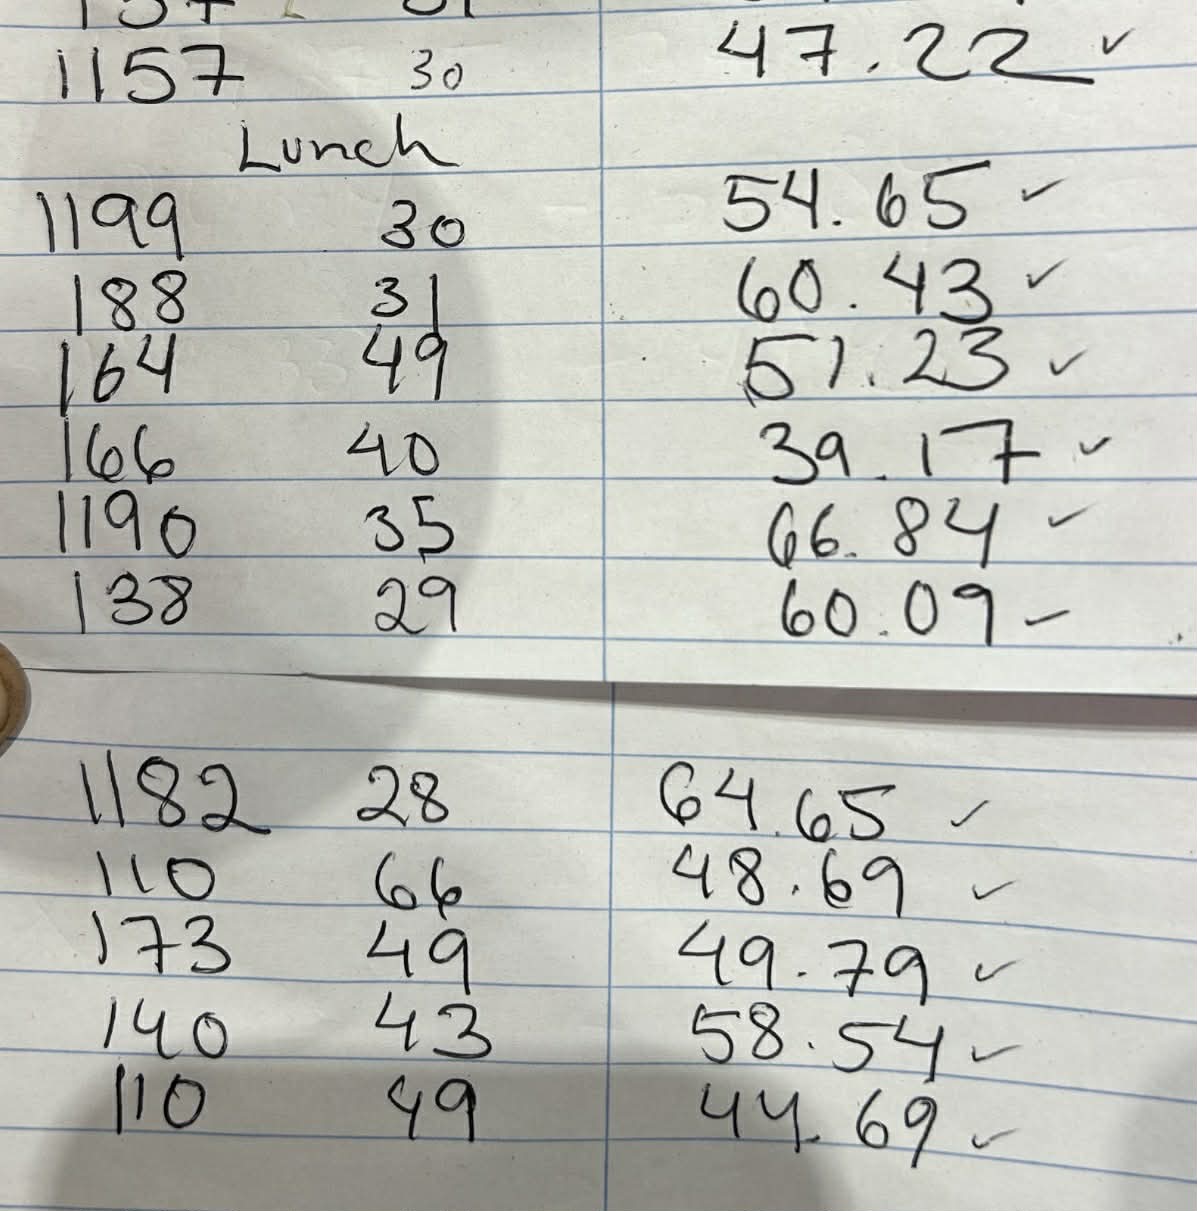 1157 30 47.22 ✓
Lunch
1199 30 54.65 ✓
188 31 60.43 ✓
164 49 51.23 ✓
166 40 39.17 ✓
1190 35 66.84 ✓
138 29 60.09 ✓
1182 28 64.65 ✓
110 66 48.69 ✓
173 49 49.79 ✓
140 43 58.54 ✓
110 49 44.69 ✓